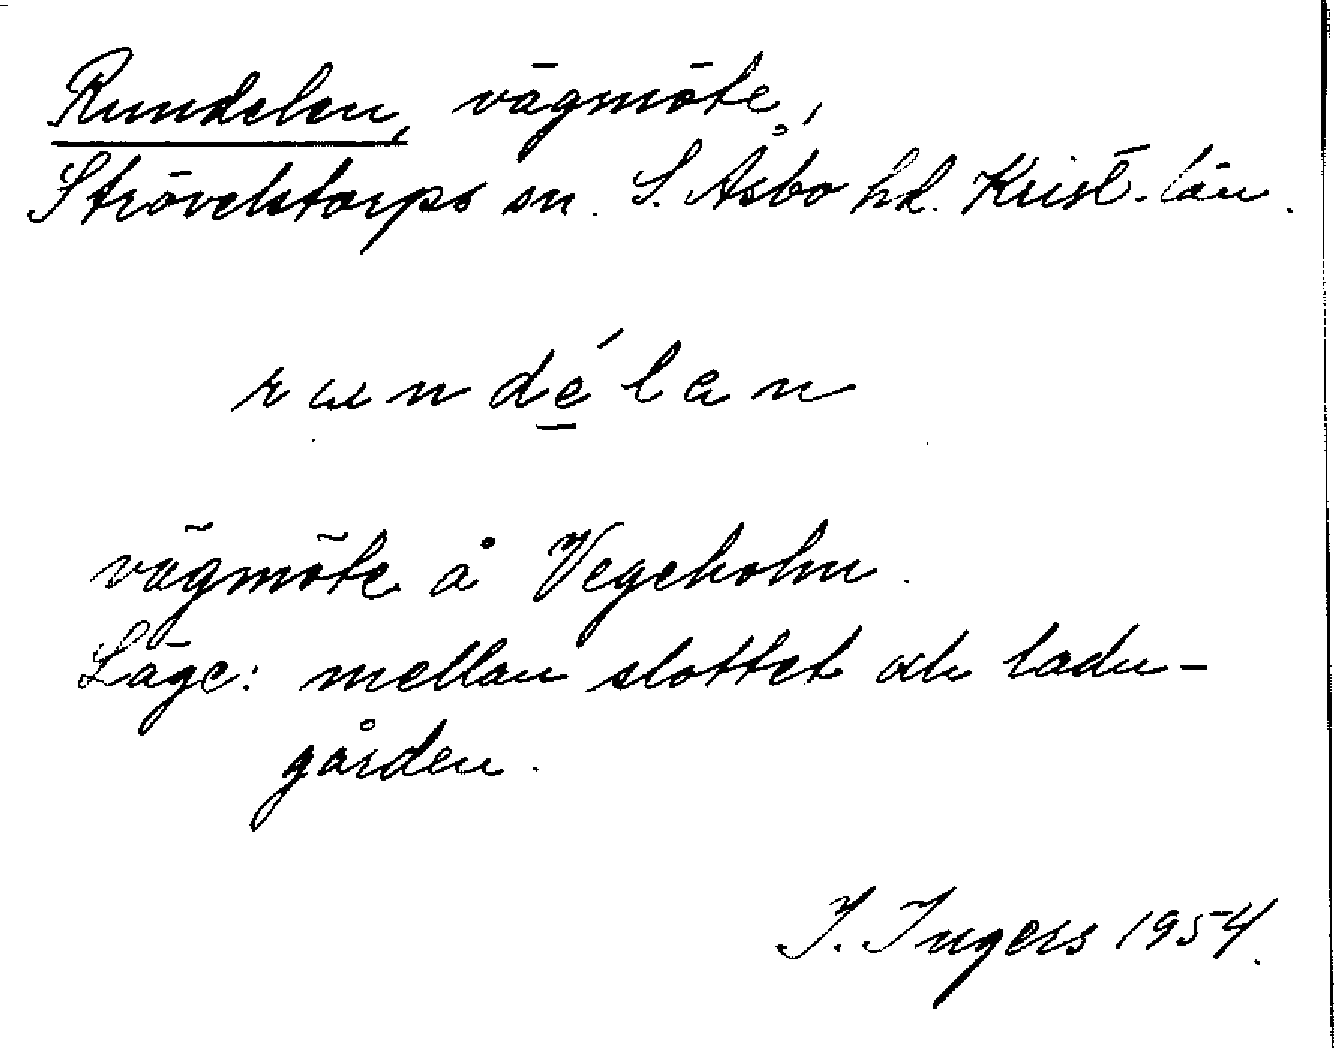 Rundelen, vägmöte,
Strövelstorps sn. S. Åsbo hd. Krist. län.
rundélan
vägmöte å Vegeholm.
Läge: mellan slottet och ladu-
gården.
I. Ingers 1954.